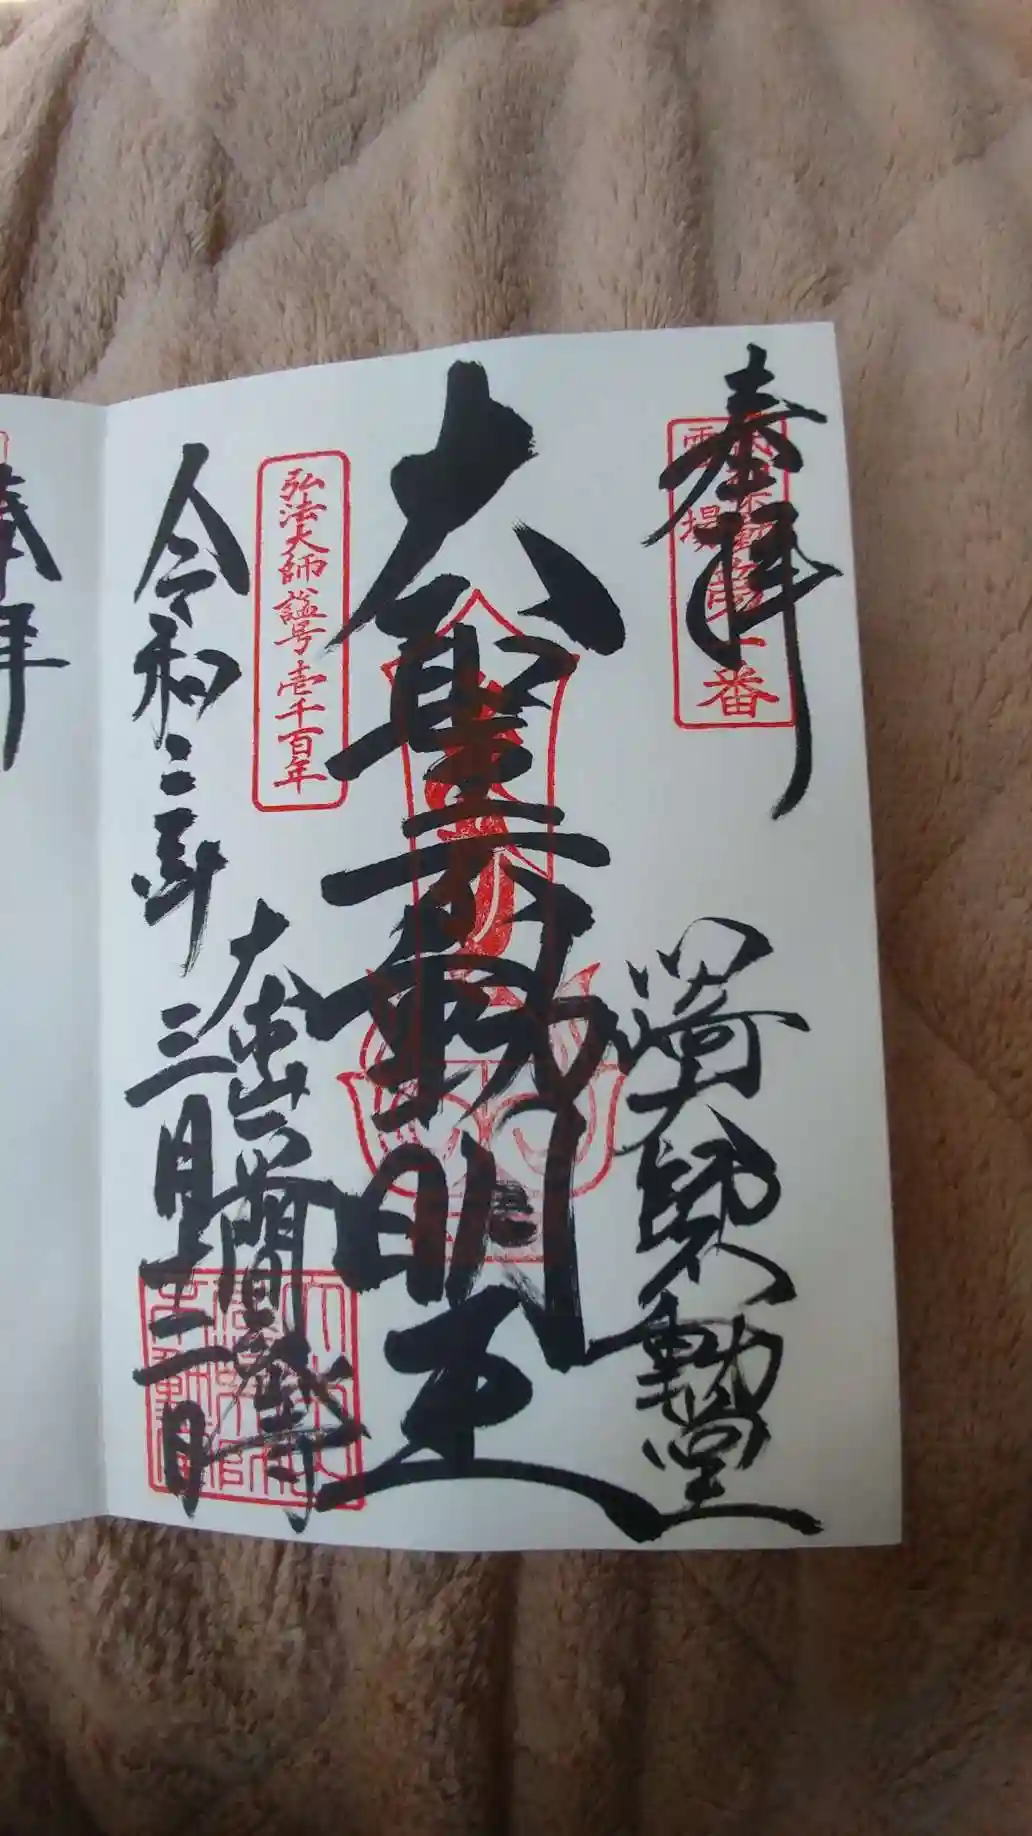 奉拝
霊場
第一番
川崎大師不動堂
大聖不動明王
弘法大師諡号壱千百年
大本山平間寺
令和三年三月二十一日
奉拝